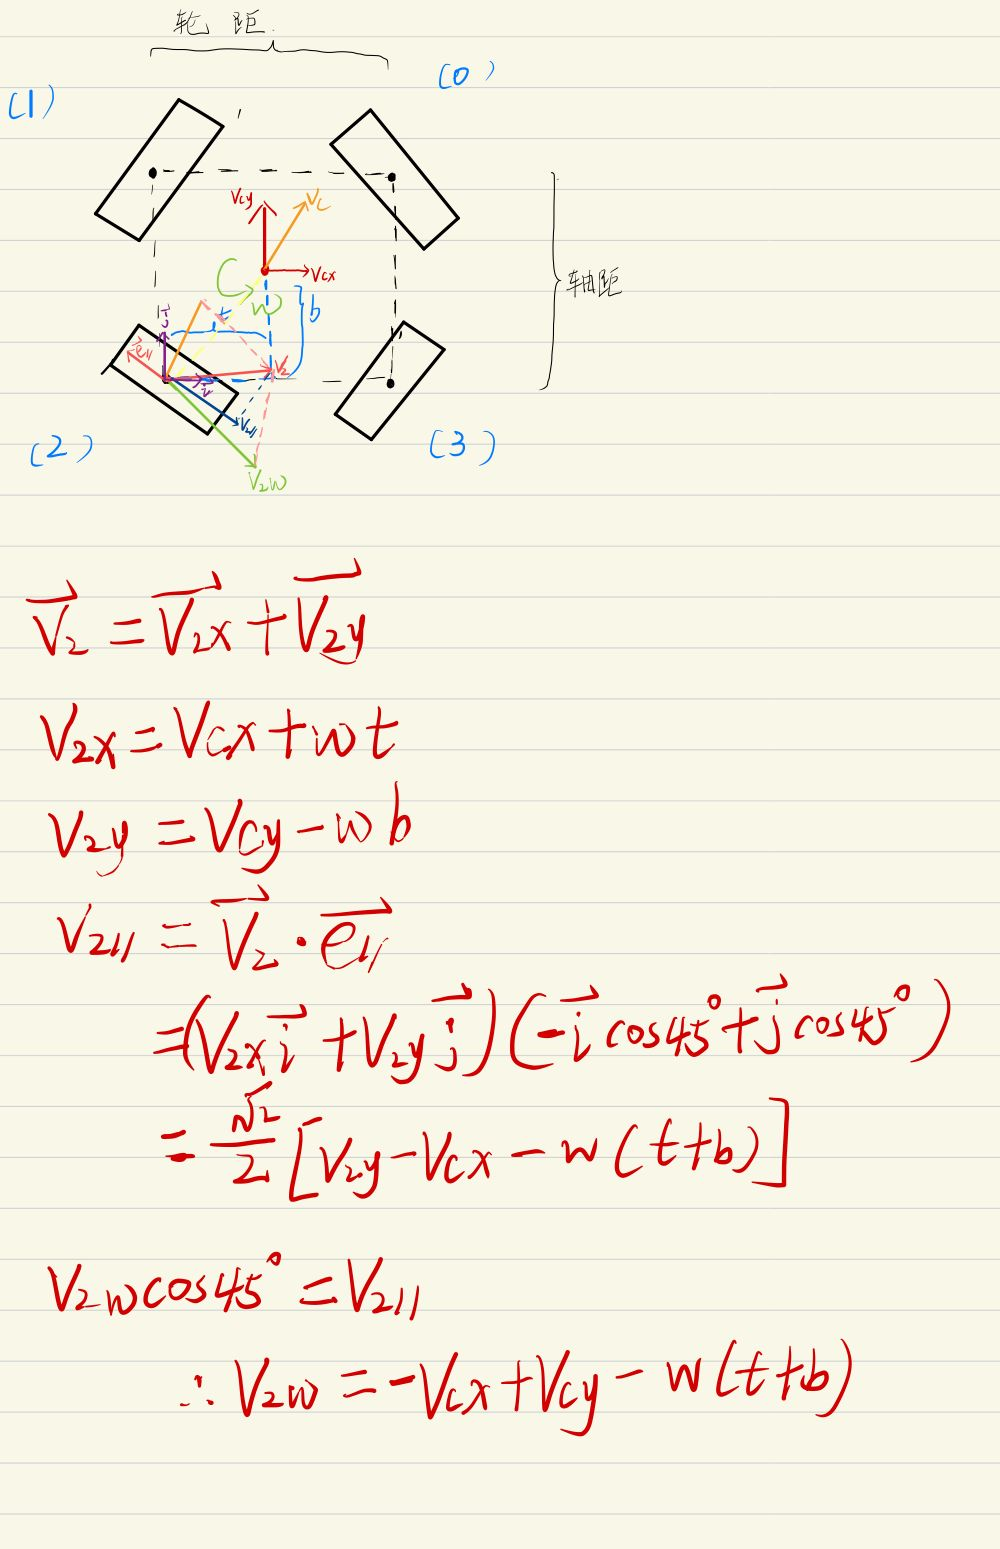 轮 距
(0)
(1)
Vcy
Vc
Vcx
C
w
b
t
轴距
j
e11
V2
i
V211
(2)
(3)
V2w
V2 = V2x + V2y
V2x = Vcx + wt
V2y = Vcy - wb
V211 = V2 · e11
= (V2x i + V2y j)(-i cos45° + j cos45°)
= √2/2 [V2y - Vcx - w(t+b)]
V2w cos45° = V211
∴ V2w = -Vcx + Vcy - w(t+b)